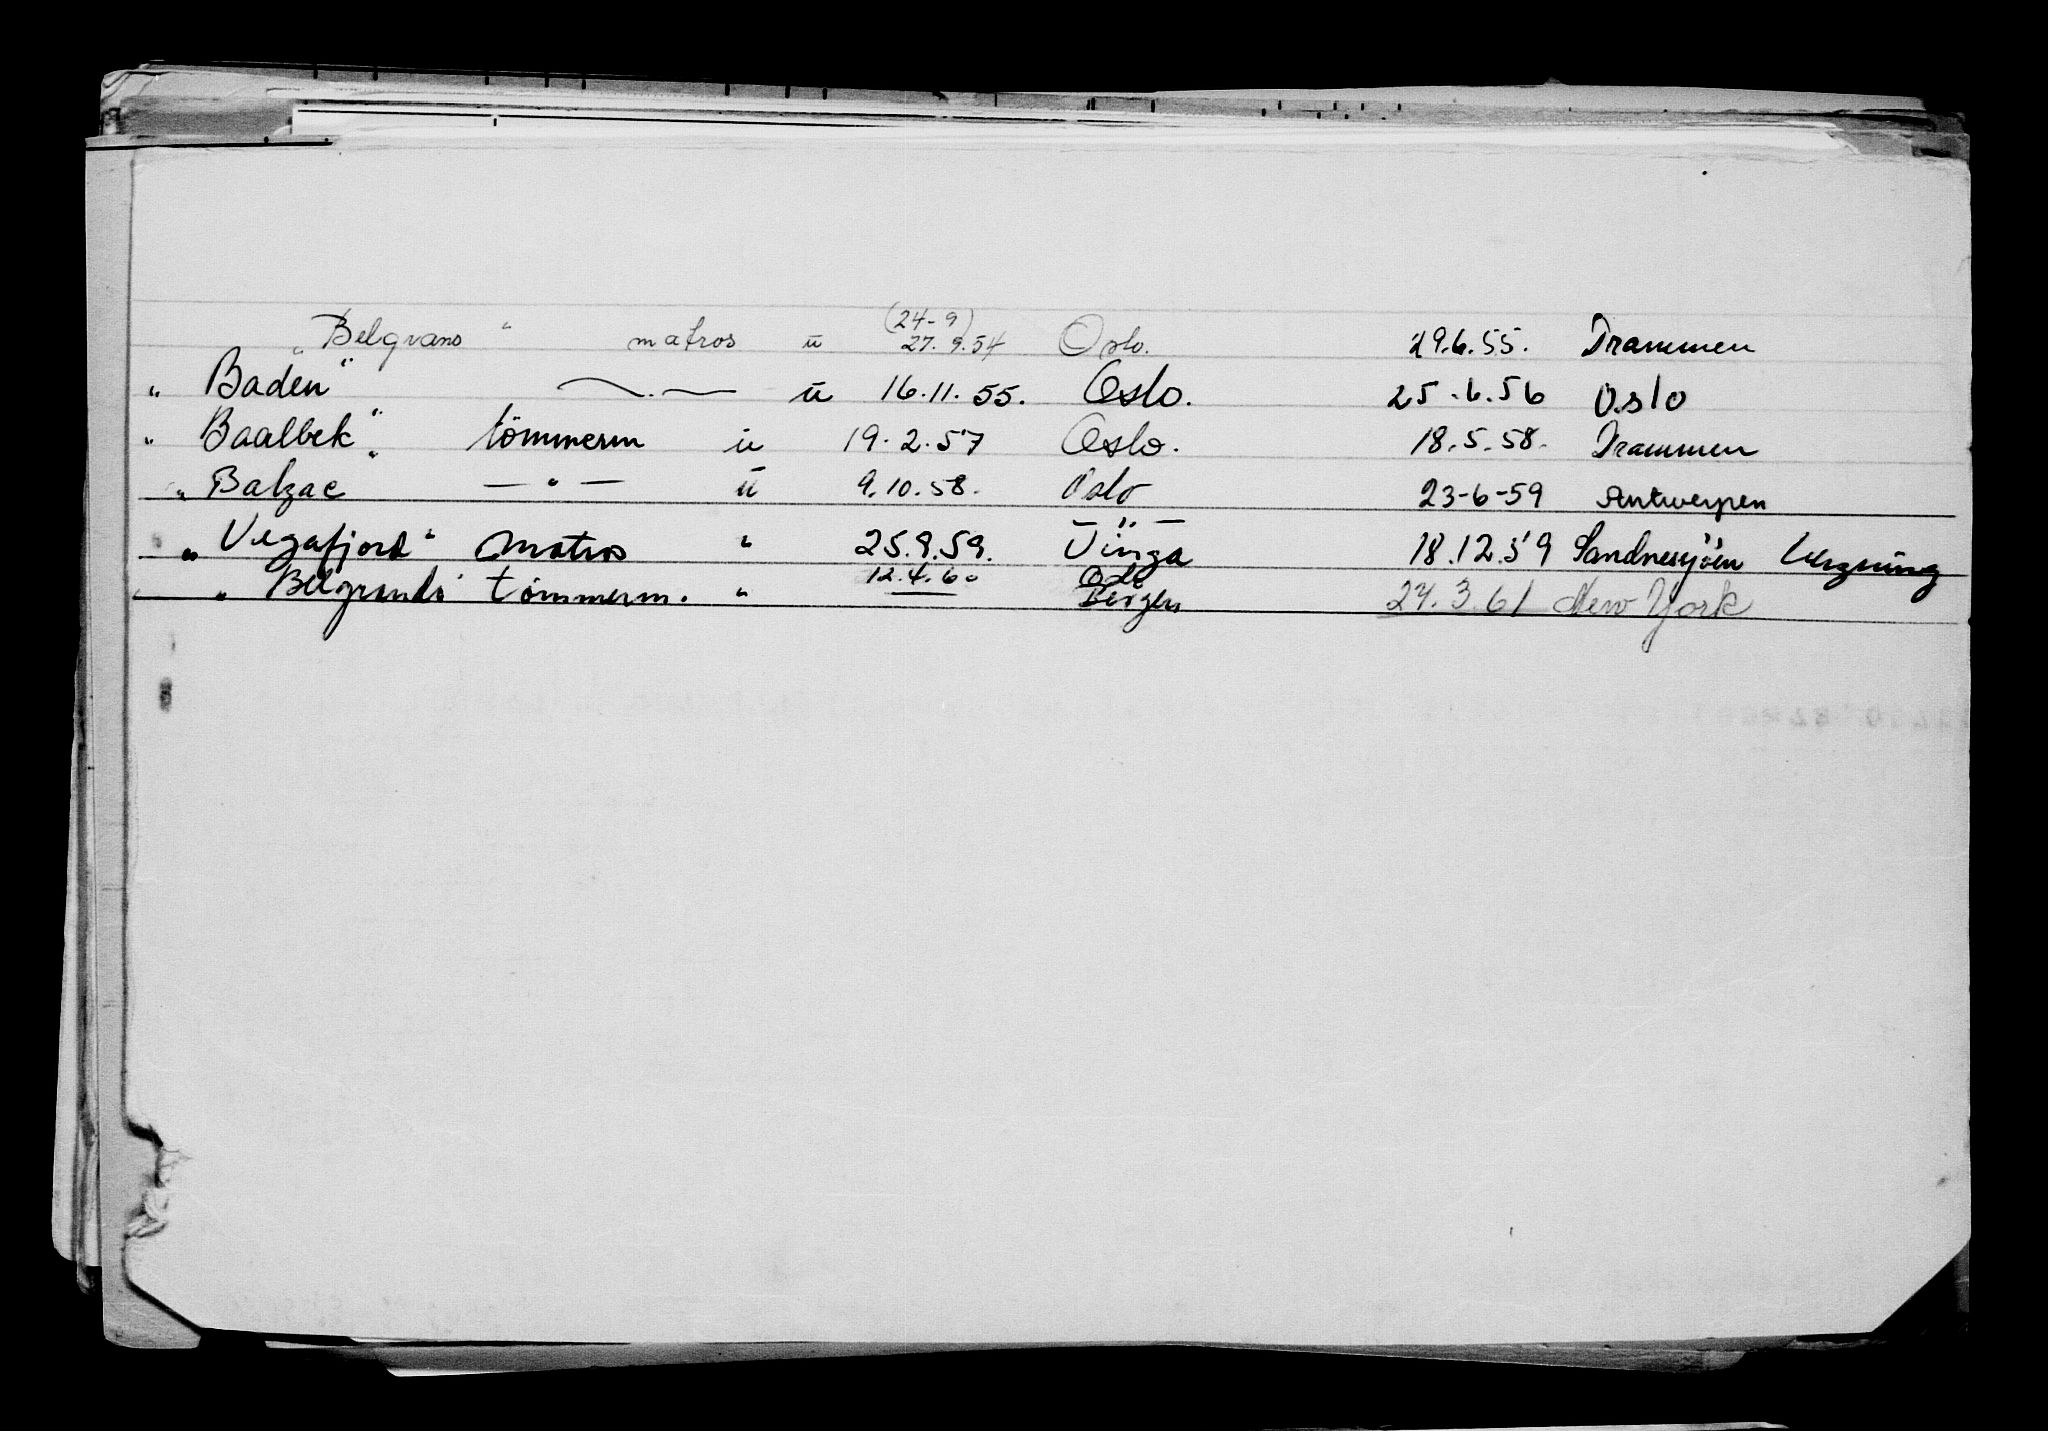 (24-9)
„Belgrano" matros u 27.9.54 Oslo. 29.6.55. Drammen
„ Baden" —.— u 16.11.55. Oslo. 25.6.56 Oslo
„ Baalbek" tömmerm u 19.2.57 Oslo. 18.5.58. Drammen
„ Balzac" — " — u 9.10.58. Oslo 23-6-59 Antwerpen
„ Vegafjord" Matros " 25.9.59. — " — 18.12.59 Sandnessjöen
„ tömmerm. " 12.4.60 Oslo Bergen 24.3.61 New York